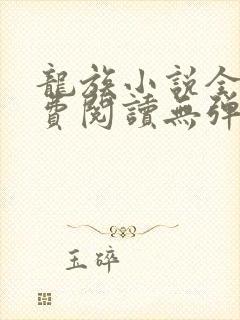 龍族小說全
費閱讀無彈
玉碎